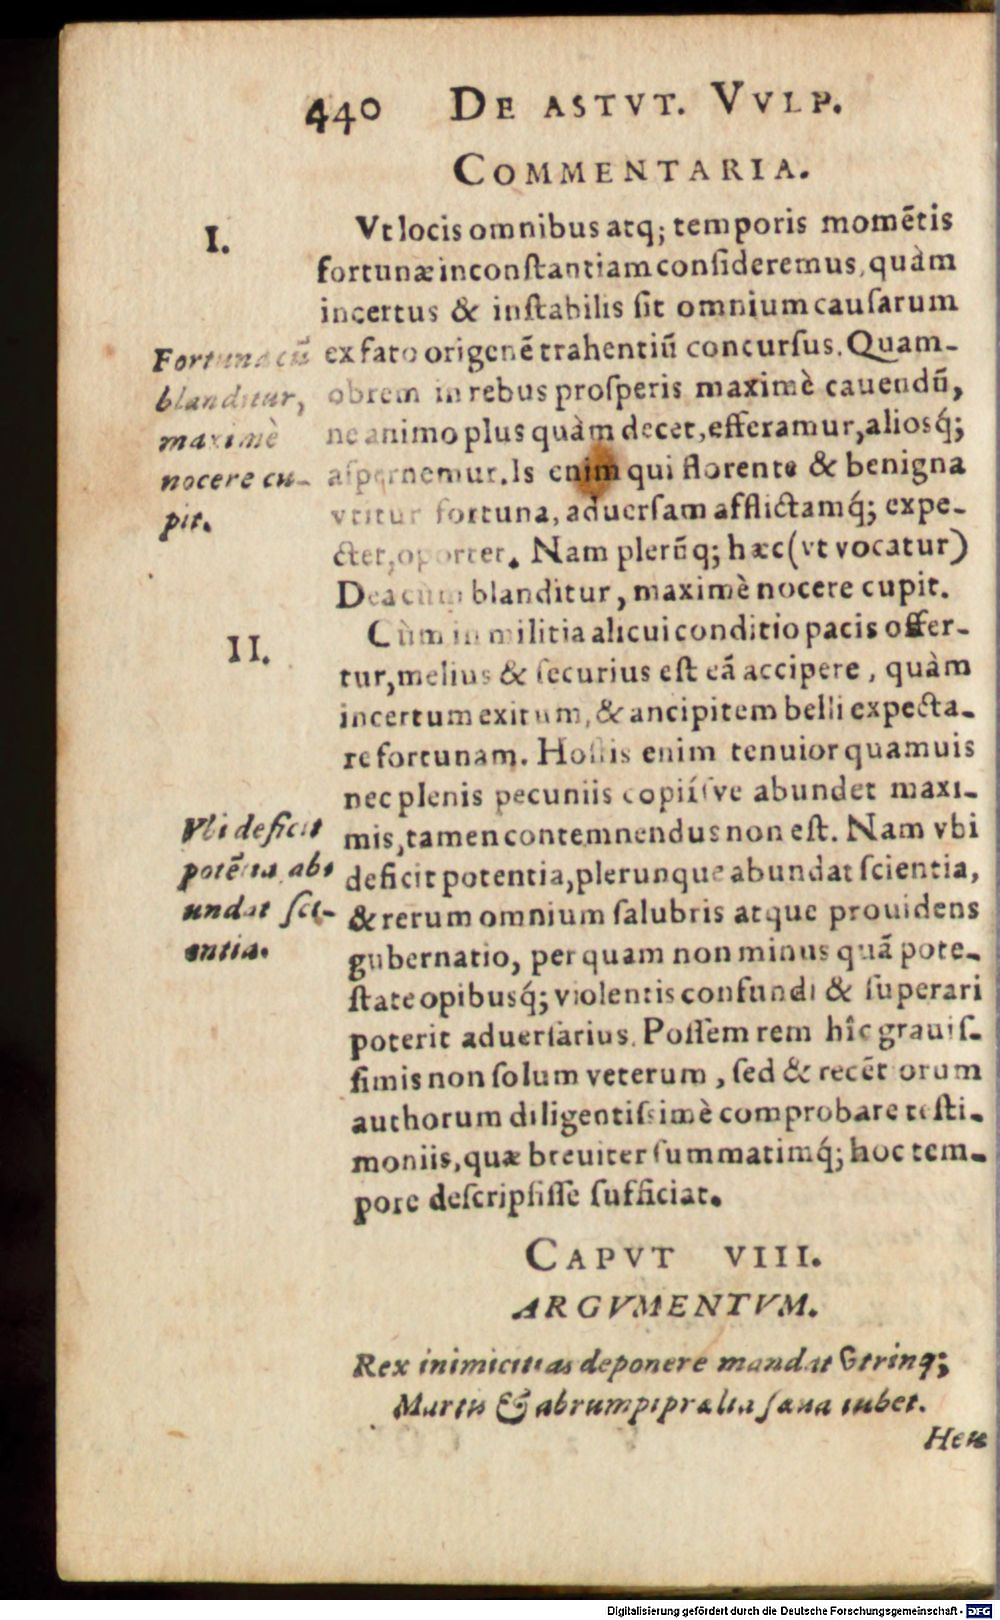 440 DE ASTVT. VVLP.
COMMENTARIA.
I.
Vt locis omnibus atq; temporis momẽtis
fortunæ inconſtantiam conſideremus, quàm
incertus & inſtabilis ſit omnium cauſarum
ex fato origenẽ trahentiũ concurſus. Quam-
obrem in rebus proſperis maximè cauendũ,
ne animo plus quàm decet, efferamur, aliosq́;
aſpernemur. Is enim qui florente & benigna
vtitur fortuna, aduerſam afflictamq́; expe-
ctet, oportet. Nam plerũq; hæc (vt vocatur)
Dea cùm blanditur, maximè nocere cupit.
Fortuna cũ
blanditur,
maximè
nocere cu-
pit.
II.
Cùm in militia alicui conditio pacis offer-
tur, melius & ſecurius eſt eã accipere, quàm
incertum exitum, & ancipitem belli expecta-
re fortunam. Hoſtis enim tenuior quamuis
nec plenis pecuniis copiíſve abundet maxi-
mis, tamen contemnendus non eſt. Nam vbi
deficit potentia, plerunque abundat ſcientia,
& rerum omnium ſalubris atque prouidens
gubernatio, per quam non minus quã pote-
ſtate opibusq́; violentis confundi & ſuperari
poterit aduerſarius. Poſſem rem hîc grauiſ-
ſimis non ſolum veterum, ſed & recẽt orum
authorum diligentiſsimè comprobare teſti-
moniis, quæ breuiter ſummatimq́; hoc tem-
pore deſcripſiſſe ſufficiat.
Vbi deficit
potẽtia, ab-
undat ſci-
entia.
CAPVT VIII.
ARGVMENTVM.
Rex inimicitias deponere mandat vtrinq;
Martis & abrumpi prælia ſæua iubet.
Heu
Digitalisierung gefördert durch die Deutsche Forschungsgemeinschaft - DFG